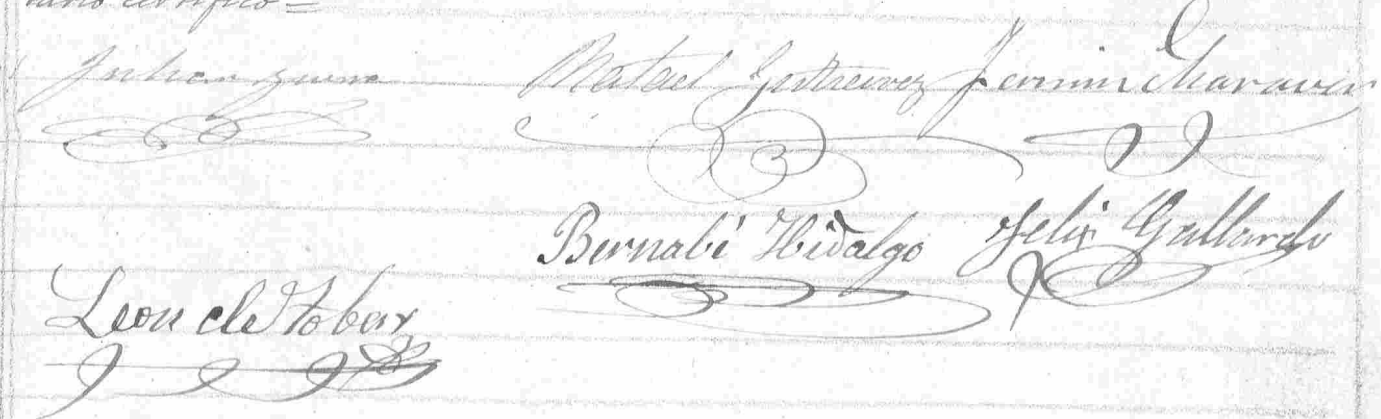 certifico =
Julian Rafael Gutierrez Fermin
Bernabé Hidalgo Felix Gallardo
Leon de Tobar